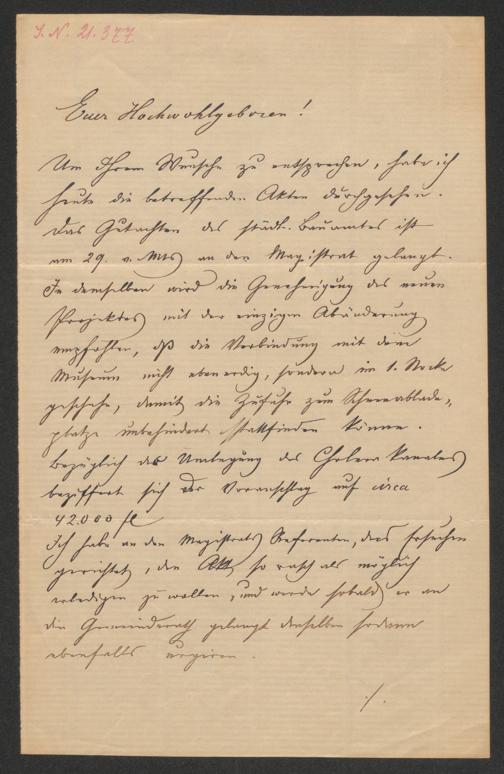 J. N. 21.377
Euer Hochwohlgeboren!
Um Ihrem Wunsche zu entsprechen, habe ich
heute die betreffenden Akten durchgesehen.
Das Gutachten des städt. Bauamtes ist
am 29. v. Mts an den Magistrat gelangt.
In demselben wird die Genehmigung des neuen
Projektes mit der einzigen Abänderung
empfohlen, daß die Verbindung mit dem
Museum nicht ebenerdig, sondern im 1. Stocke
geschehe, damit die Zufuhr zum Schneeablade-
platze unbehindert stattfinden könne.
Bezüglich der Umlegung des Cholera Kanales
beziffert sich der Voranschlag auf circa
42.000 fl
Ich habe an den Magistrats Referenten, das Ersuchen
gerichtet, den Akt so rasch als möglich
erledigen zu wollen, und werde sobald er an
den Gemeinderath gelangt denselben sodann
ebenfalls urgiren.
./.